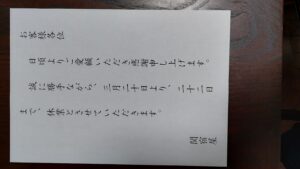 お客様各位
日頃よりご愛顧いただき感謝申し上げます。
誠に勝手ながら、三月二十日より、二十二日
まで、休業とさせていただきます。
関宿屋